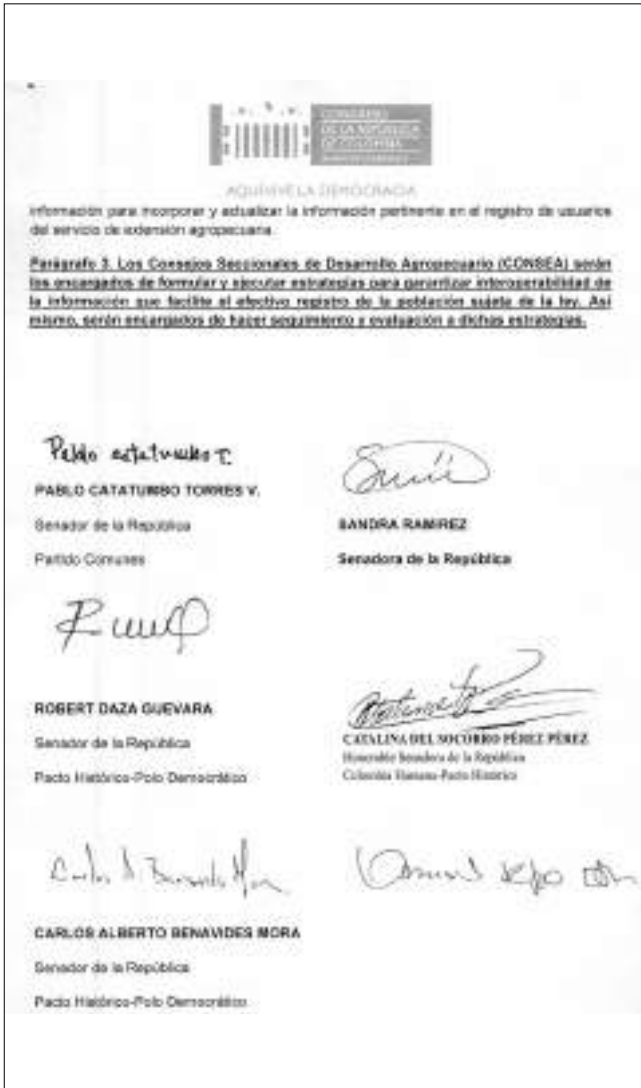 CONGRESO
DE LA REPÚBLICA
DE COLOMBIA
AQUÍ VIVE LA DEMOCRACIA
información para incorporar y actualizar la información pertinente en el registro de usuarios
del servicio de extensión agropecuaria.
Parágrafo 3. Los Consejos Seccionales de Desarrollo Agropecuario (CONSEA) serán
los encargados de formular y ejecutar estrategias para garantizar interoperabilidad de
la información que facilite el efectivo registro de la población sujeta de la ley. Así
mismo, serán encargados de hacer seguimiento y evaluación a dichas estrategias.
Pablo Catatumbo T.
PABLO CATATUMBO TORRES V.
Senador de la República
Partido Comunes
SANDRA RAMIREZ
Senadora de la República
ROBERT DAZA GUEVARA
Senador de la República
Pacto Histórico-Polo Democrático
CATALINA DEL SOCORRO PÉREZ PÉREZ
Honorable Senadora de la República
Colombia Humana-Pacto Histórico
CARLOS ALBERTO BENAVIDES MORA
Senador de la República
Pacto Histórico-Polo Democrático